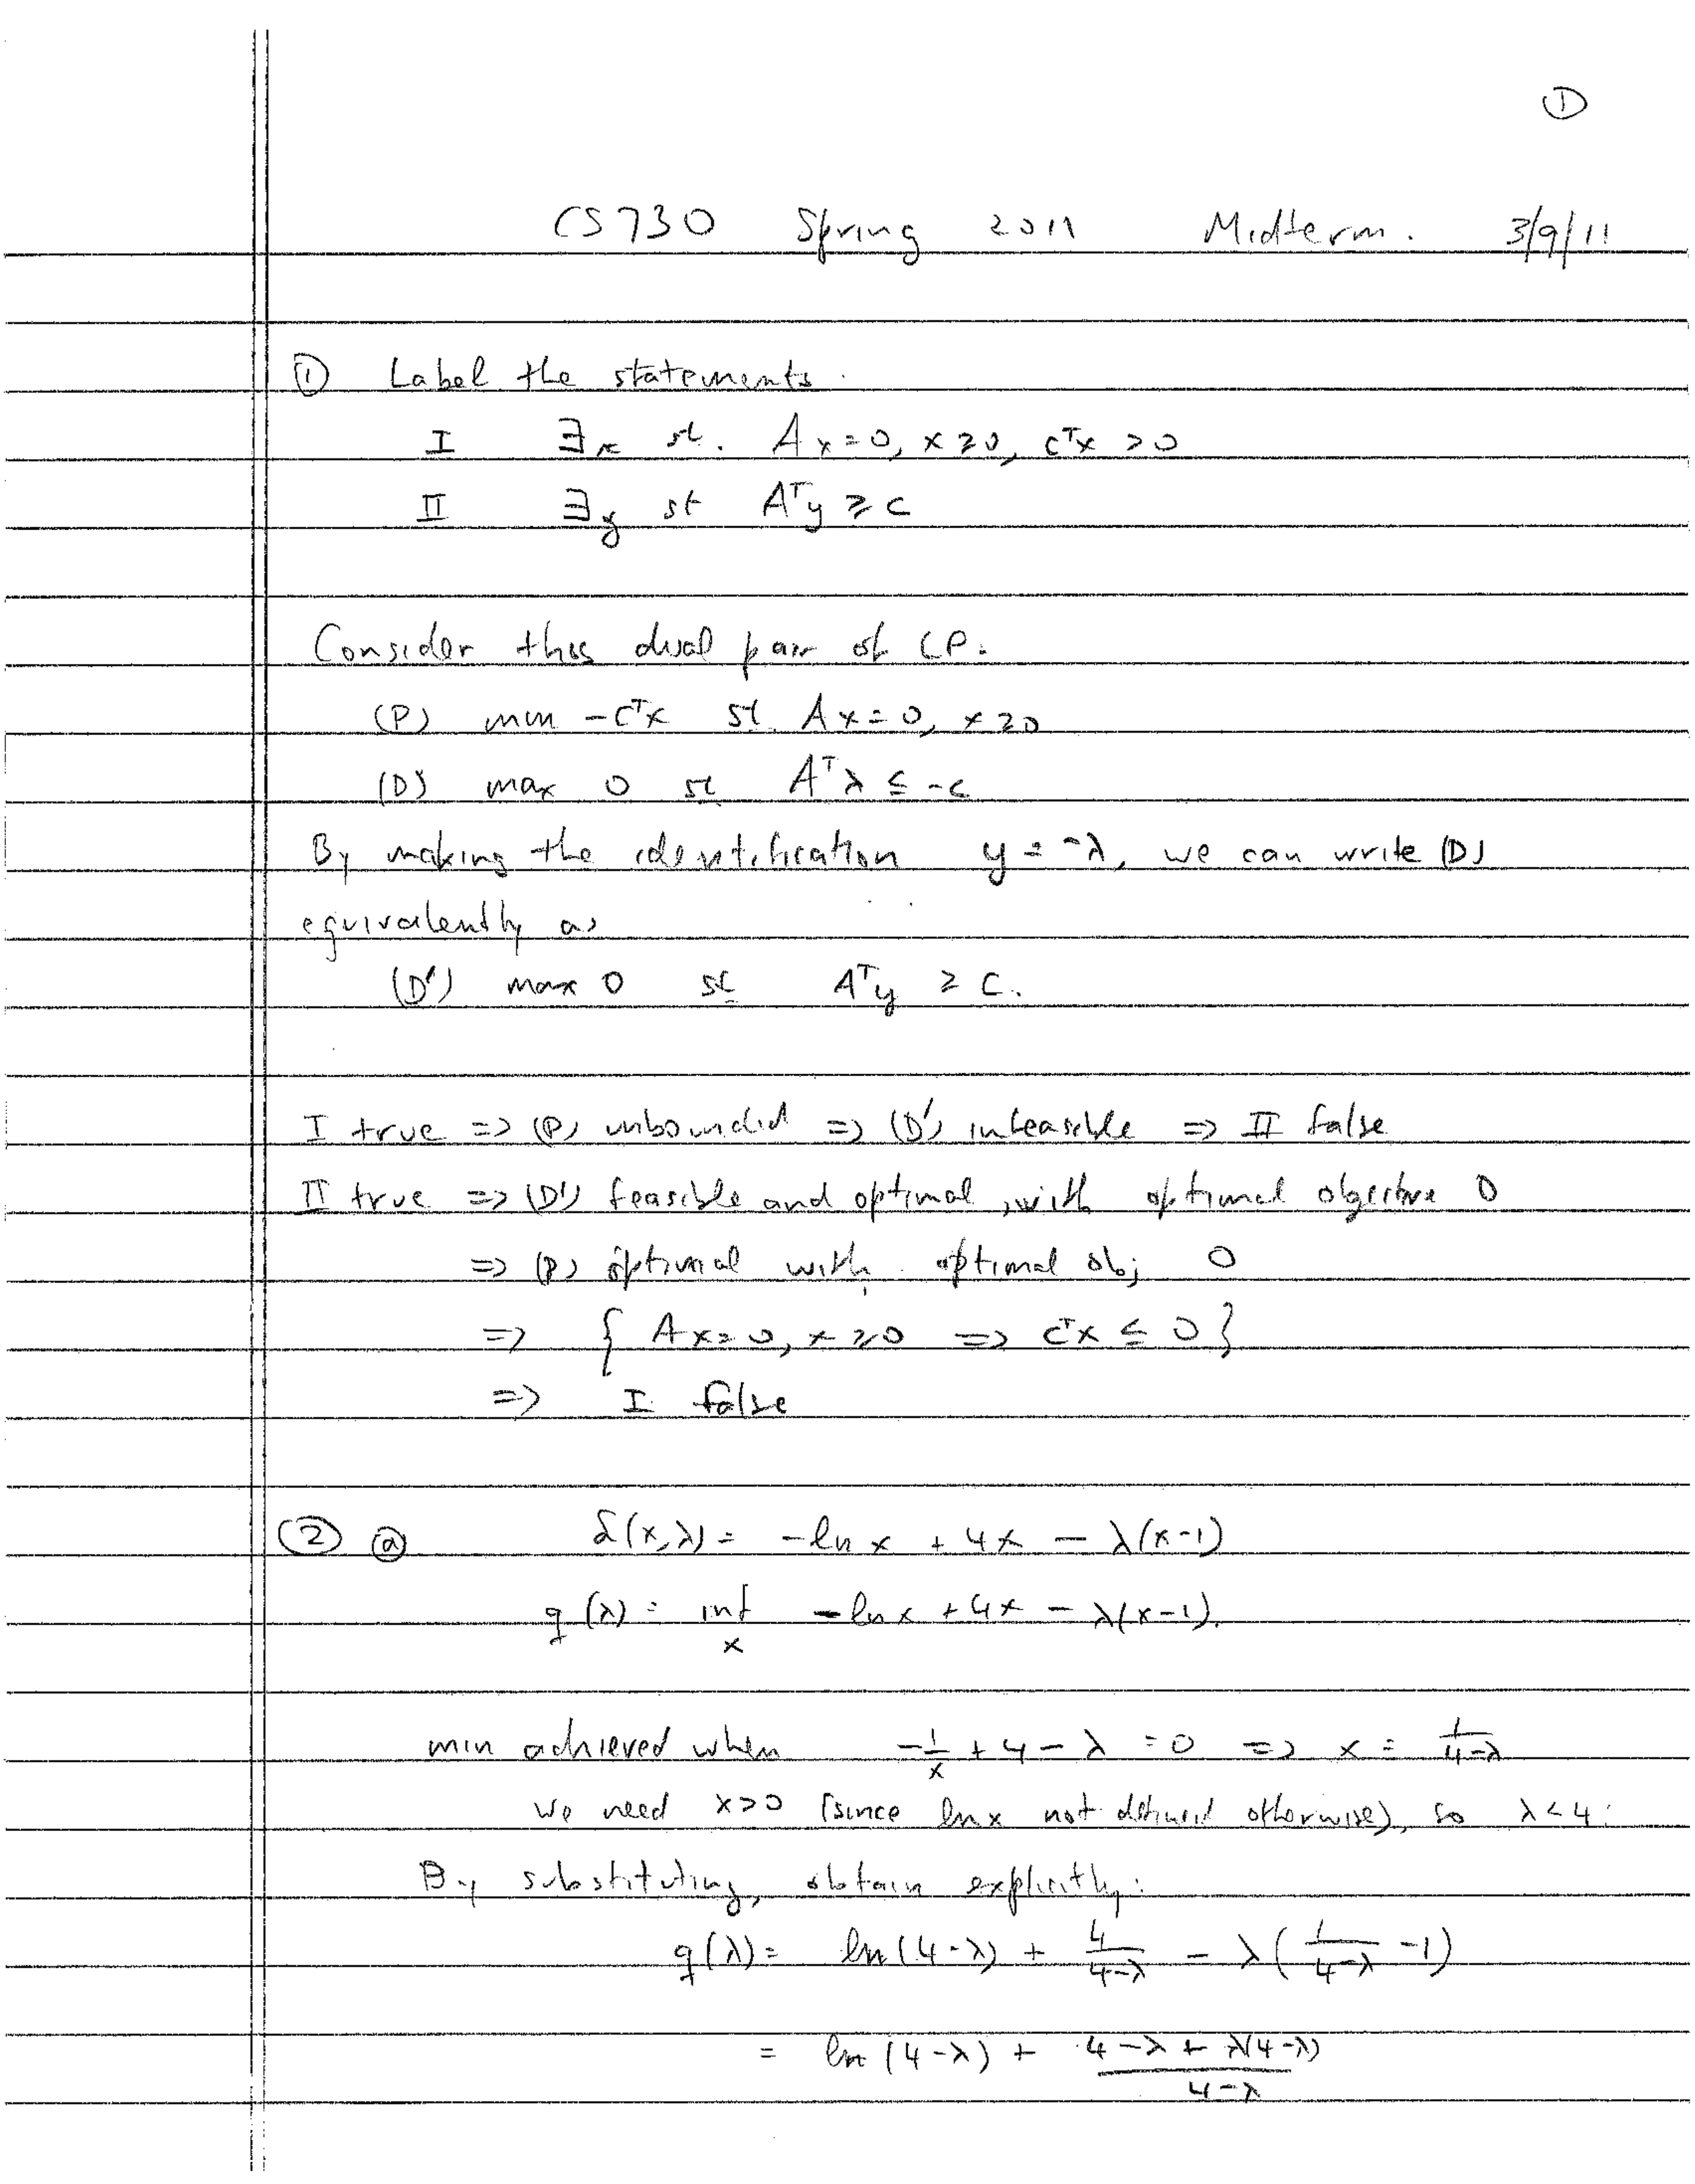 ①
CS730 Spring 2011 Midterm. 3/9/11
① Label the statements.
I ∃x st. Ax=0, x≥0, cᵀx >0
II ∃y st Aᵀy ≥ c
Consider this dual pair of LP.
(P) min -cᵀx st. Ax=0, x≥0
(D) max 0 st Aᵀλ ≤ -c
By making the identification y = -λ, we can write (D)
equivalently as
(D') max 0 st Aᵀy ≥ c.
I true => (P) unbounded => (D') infeasible => II false
II true => (D') feasible and optimal, with optimal objective 0
=> (P) optimal with optimal obj 0
=> { Ax=0, x≥0 => cᵀx ≤ 0 }
=> I false
② ⓐ L(x,λ) = -ln x + 4x - λ(x-1)
q(λ) = inf -ln x + 4x - λ(x-1).
x
min achieved when -1/x + 4 - λ = 0 => x = 1/(4-λ)
We need x>0 (since ln x not defined otherwise), so λ<4.
By substituting, obtain explicitly:
q(λ) = ln(4-λ) + 4/(4-λ) - λ(1/(4-λ) - 1)
= ln(4-λ) + (4-λ + λ(4-λ))/(4-λ)